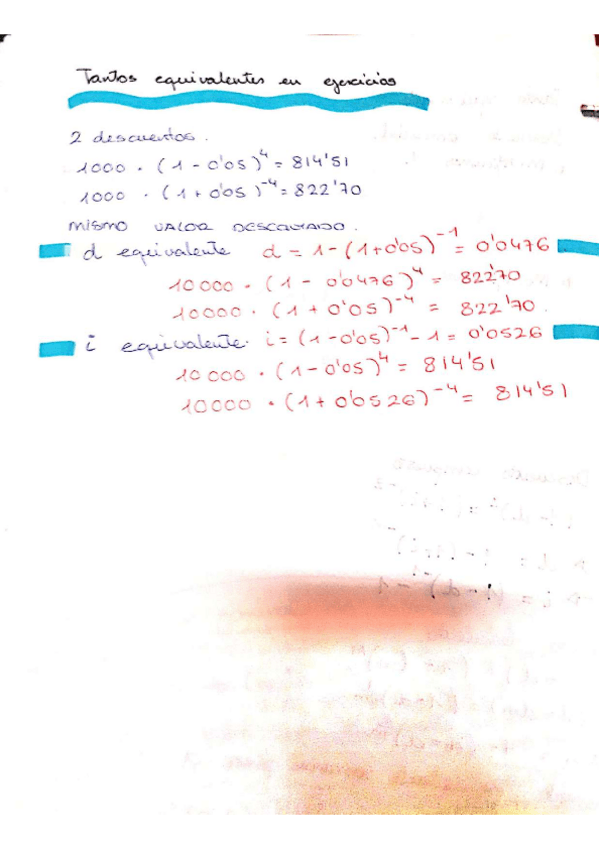 Tantos equivalentes en ejercicios
2 descuentos.
1000 · (1 - 0'05)^4 = 814'51
1000 · (1 + 0'05)^-4 = 822'70
MISMO VALOR DESCONTADO.
d equivalente d = 1 - (1+0'05)^-1 = 0'0476
10000 · (1 - 0'0476)^4 = 822'70
10000 · (1 + 0'05)^-4 = 822'70.
i equivalente. i = (1 - 0'05)^-1 - 1 = 0'0526
10000 · (1 - 0'05)^4 = 814'51
10000 · (1 + 0'0526)^-4 = 814'51